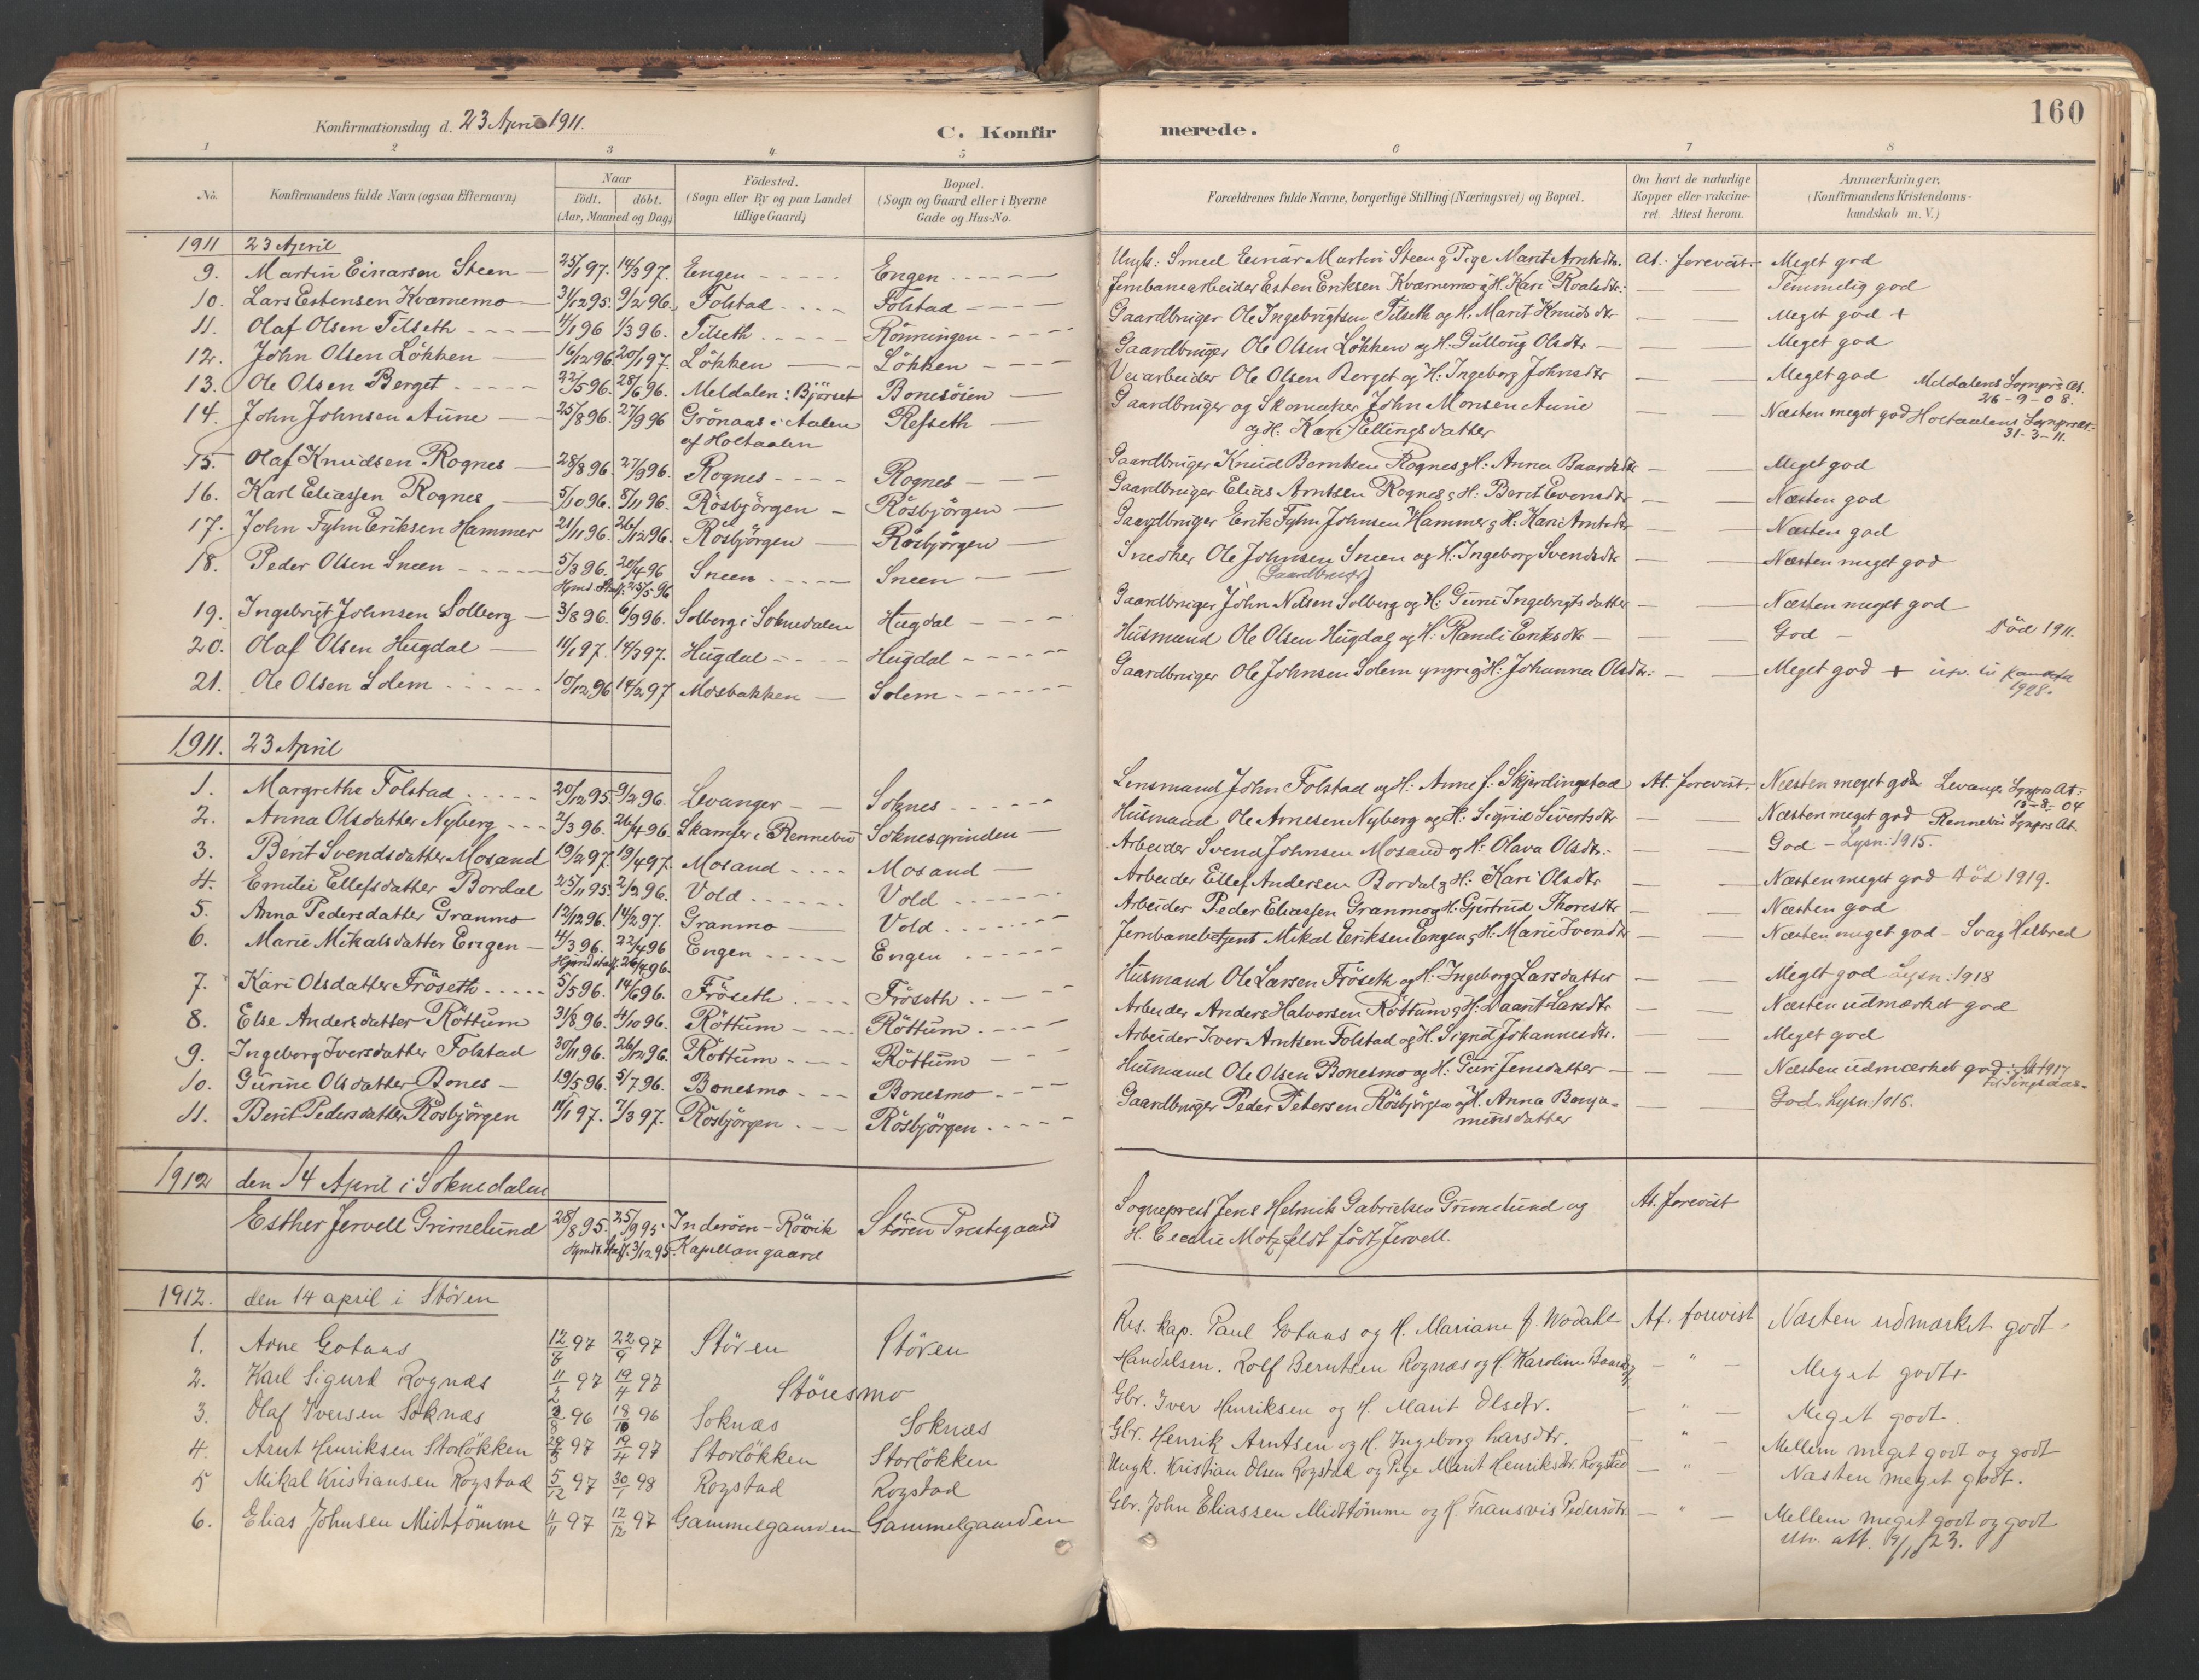 Konfirmationsdag d. 23 April 1911.
C. Konfirmerede.
160
1 2 3 4 5 6 7 8
No. Konfirmandens fulde Navn (ogsaa Efternavn) Naar födt. döbt. (Aar, Maaned og Dag) Födested. (Sogn eller By og paa Landet tillige Gaard) Bopæl. (Sogn og Gaard eller i Byerne Gade og Hus-No. Forældrenes fulde Navne, borgerlige Stilling (Næringsvei) og Bopæl. Om havt de naturlige Kopper eller vakcineret. Attest herom. Anmærkninger, (Konfirmandens Kristendomskundskab m. V.)
1911 23 April
9. Martin Einarsen Steen 25/1 97. 14/3 97. Engen Engen Ungk: Smed Einar Martin Steen og Pige Marit Arntsdtr. At. forevist. Meget god
10. Lars Estensen Kværnemo 31/12 95. 9/2 96. Folstad Folstad Jernbanearbeider Esten Eriksen Kværnemo og H. Kari Roaldsdtr. Temmelig god
11. Olaf Olsen Tilseth 4/1 96 1/3 96. Tilseth Rönningen Gaardbruger Ole Ingebrigtsen Tilseth og H. Marit Knudsdtr Meget god +
12. John Olsen Lökken 16/12 96. 20/1 97. Lökken Lökken Gaardbruger Ole Olsen Lökken og H: Gullaug Olsdtr Meget god
13. Ole Olsen Berget 22/5 96. 28/6 96. Meldalen: Bjørset Bonesöien Veiarbeider Ole Olsen Berget og H: Ingeborg Johnsdtr Meget god Meldalens Sognpr's At. 26-9-08.
14. John Johnsen Aune 25/8 96. 27/9 96 Grönaas i Aalen af Holtaalen Refseth Gaardbruger og Skomaker John Monsen Aune og H. Kari Ellingsdatter Næsten meget god Holtaalens Sognpr. 31-3-11.
15. Olaf Knudsen Rognes 28/8 96. 27/9 96. Rognes Rognes Gaardbruger Knud Berntsen Rognes og H: Anna Baardsdtr Meget god
16. Karl Eliassen Rognes 5/10 96. 8/11 96. Rösbjörgen Rösbjörgen Gaardbruger Elias Arntsen Rognes og H: Berit Evensdtr Næsten god
17. John Fyhn Eriksen Hammer 21/11 96. 26/12 96. Rösbjörgen Rösbjörgen Gaardbruger Erik Fyhn Johnsen Hammer og H: Kari Arntsdtr Næsten god
18. Peder Olsen Sneen 5/3 96. 20/4 96 Hjmd. Stadf. 25/5 96 Sneen Sneen Snedker Ole Johnsen Sneen og H: Ingeborg Svendsdtr Næsten meget god
(Gaardbruger)
19. Ingebrigt Johnsen Solberg 3/8 96. 6/9 96. Solberg i Soknedalen Hugdal Gaardbruger John Nilsen Solberg og H: Guru Ingebrigtsdatter Næsten meget god
20. Olaf Olsen Hugdal 11/1 97. 14/3 97. Hugdal Hugdal Husmand Ole Olsen Hugdal og H: Randi Eriksdtr God Död 1911.
21. Ole Olsen Solem 10/12 96 14/2 97 Mosbakken Solem Gaardbruger Ole Johnsen Solem yngre og H: Johanna Olsdtr. Meget god + 1928.
1911. 23 April
1. Margrethe Folstad 20/12 95. 9/2 96. Levanger Soknes Lensmand John Folstad og H: Anne f. Skjerdingstad At. forevist. Næsten meget god Levanger Sognpr. At. 15-8-04
2. Anna Olsdatter Nyberg 2/3 96. 26/4 96. Skamfer i Rennebu Soknesgrinden Husmand Ole Arnesen Nyberg og H: Sigrid Sivertsdtr Næsten meget god Rennebu Sognprs At.
3. Berit Svendsdatter Mosand 19/2 97. 19/4 97. Mosand Mosand Arbeider Svend Johnsen Mosand og H: Olava Olsdtr. God - Lysn. 1915.
4. Emilie Ellefsdatter Bordal 25/11 95. 2/2 96. Vold Vold Arbeider Ellef Andersen Bordal og H: Kari Olsdtr Næsten meget god Död 1919.
5. Anna Pedersdatter Granmo 12/12 96. 14/2 97. Granmo Vold Arbeider Peder Eliassen Granmo og H: Gjertrud Thoresdtr Næsten god
6. Marie Mikalsdatter Engen 4/3 96. 22/4 96 Hjemd. stadf. 26/4 96. Engen Engen Jernbanebetjent Mikal Eriksen Engen og H: Marie Ivarsdtr Næsten meget god - Svag Helbred
7. Kari Olsdatter Fröseth 5/5 96. 14/6 96. Fröseth Fröseth Husmand Ole Larsen Fröseth og H: Ingeborg Larsdatter Meget god Lysn: 1918
8. Else Andersdatter Röttum 31/8 96. 4/10 96. Röttum Röttum Arbeider Anders Halvorsen Röttum og H: Larsdtr Næsten udmærket god
9. Ingeborg Iversdatter Folstad 30/11 96. 26/12 96. Röttum Röttum Arbeider Iver Arntsen Folstad og H. Sigrid Johannesdtr. Meget god
10. Gurine Olsdatter Bones 19/5 96. 5/7 96. Bonesmo Bonesmo Husmand Ole Olsen Bonesmo og H: Guri Jensdatter Næsten udmærket god. At 1917 til Tingvaas
11. Berit Pedersdatter Rösbjörgen 11/1 97. 7/3 97. Rösbjörgen Rösbjörgen Gaardbruger Peder Petersen Rösbjörgen og H. Anna Benjaminsdatter God. Lysn. 1916.
1912 den 14 April i Soknedalen
Esther Jervell Grimelund 28/8 95. 25/9 95. Hjmds. Stadf. 3/12 95. Inderöen - Rövik Kapellangaard Stören Prestegaard Sogneprest Jens Helmik Gabrielsen Grimelund og H. Cecilie Motzfeldt född Jervell. At. forevist
1912. den 14 april i Stören
1. Arne Gotaas 12/8 97 22/9 97 Stören Stören Res. kap. Paul Gotaas og H. Mariane f. Wodahl At. forevist Næsten udmærket godt
2. Karl Sigurd Rognæs 11/2 97 19/4 97 Störesmo Handelsm. Rolf Berntsen Rognæs og H. Karoline Meget godt
3. Olaf Iversen Soknæs 3/8 96 18/10 96 Soknæs Soknæs Gbr. Iver Henriksen og H. Marit Olsdtr. Meget godt
4. Arnt Henriksen Storlökken 29/3 97 19/4 97 Storlökken Storlökken Gbr. Henrik Arntsen og H. Ingeborg Larsdtr. Mellem meget godt og godt
5 Mikal Kristiansen Rogstad 5/12 97 30/1 98 Rogstad Rogstad Ungk. Kristian Olsen Rogstad og Pige Marit Henriksdtr. Rogstad Næsten meget godt.
6. Elias Johnsen Midttömme 11/11 97 12/12 97 Gammelgaarden Gammelgaarden Gbr. John Eliassen Midttömme og H. Fransvis Pedersdtr. Mellem meget godt og godt
Utv. att. 19/1 23.